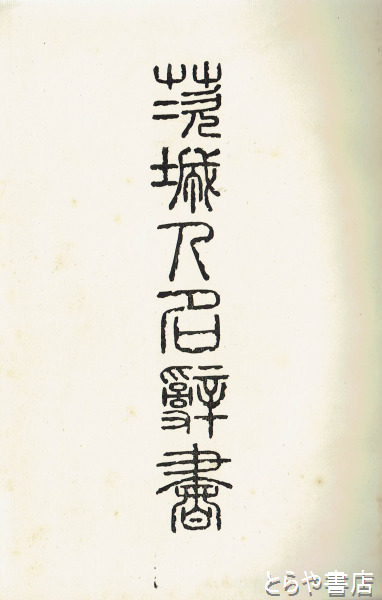 茨城人名辭書
とらや書店